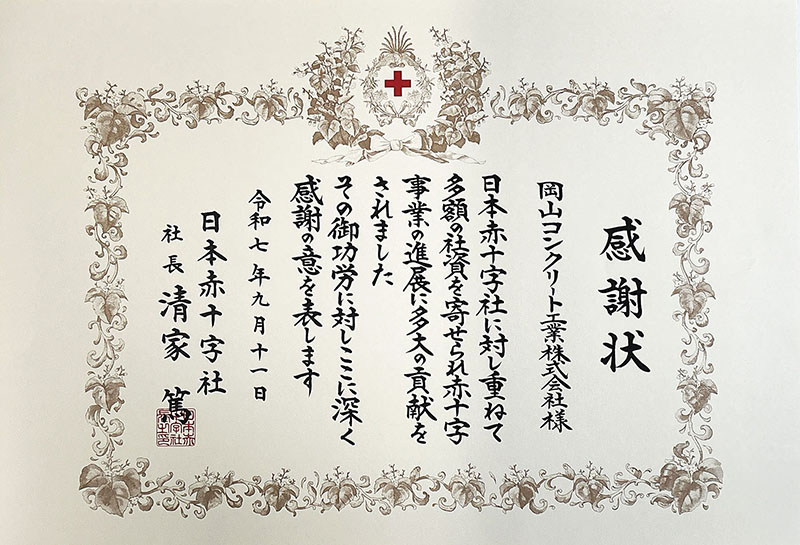 感謝状
岡山コンクリート工業株式会社様
日本赤十字社に対し重ねて
多額の社資を寄せられ赤十字
事業の進展に多大の貢献を
されました
その御功労に対しここに深く
感謝の意を表します
令和七年九月十一日
日本赤十字社
社長 清家 篤